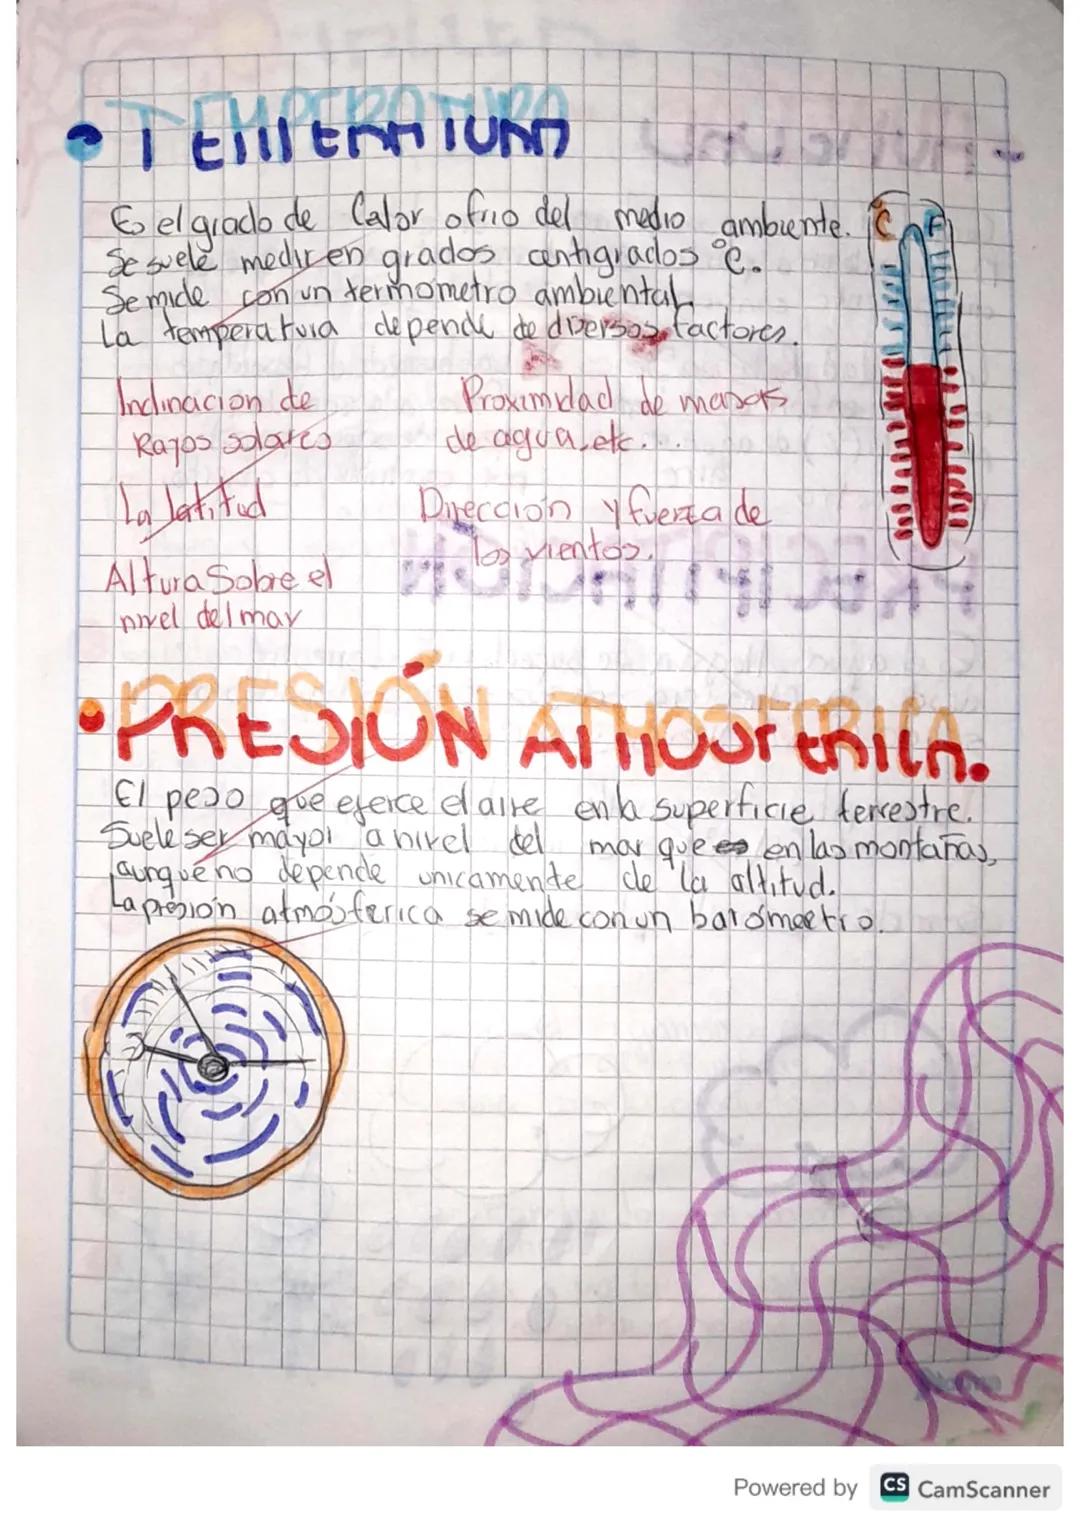 • TEMPERATURA
Es el grado de Calor o frio del medio ambiente.
Se suele medir en grados centigrados °C.
Se mide con un termometro ambiental
La temperatura depende de diversos factores.
C F
Inclinacion de
Rayos solares
Proximidad de masas
de agua, etc...
La latitud
Dirección y fuerza de
los vientos.
Altura Sobre el
nivel del mar
• PRESIÓN ATMOSFERICA.
El peso que eferce el aire en la superficie terrestre.
Suele ser mayor a nivel del mar que en las montañas,
aunque no depende unicamente de la altitud.
La presión atmósferica se mide con un barómeetro.
Powered by CS CamScanner